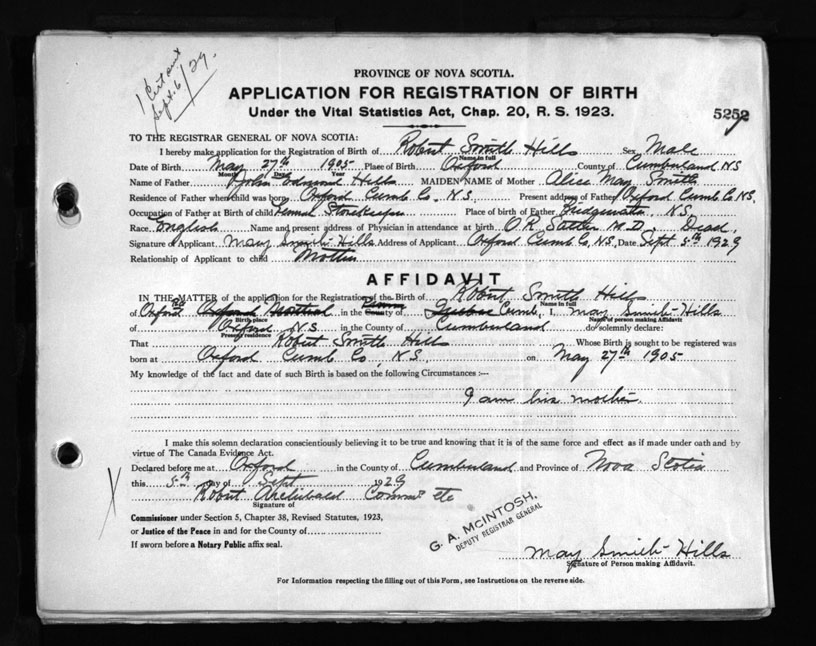 1 Cert out
Sept. 6/29.
PROVINCE OF NOVA SCOTIA.
APPLICATION FOR REGISTRATION OF BIRTH
Under the Vital Statistics Act, Chap. 20, R. S. 1923.
5252
TO THE REGISTRAR GENERAL OF NOVA SCOTIA:
I hereby make application for the Registration of Birth of Robert Smith Hills Sex Male
Name in full
Date of Birth May 27th 1905 Place of Birth Oxford County of Cumberland NS
Month Date Year
Name of Father John Edmund Hills MAIDEN NAME of Mother Alice May Smith
Residence of Father when child was born Oxford Cumb Co. N.S. Present address of Father Oxford Cumb Co NS,
Occupation of Father at Birth of child General Storekeeper Place of birth of Father Bridgewater, N.S.
Race English Name and present address of Physician in attendance at birth O.R. M.D. Dead.
Signature of Applicant May Smith-Hills Address of Applicant Oxford Cumb Co, NS, Date Sept 5th 1929
Relationship of Applicant to child Mother
AFFIDAVIT
IN THE MATTER of the application for the Registration of the Birth of Robert Smith Hills
Name in full
of Oxford NS in the County of Cumb, I, May Smith-Hills
Birth place Name of person making Affidavit
of Oxford N.S in the County of Cumberland do solemnly declare:
Present residence
That Robert Smith Hills Whose Birth is sought to be registered was
born at Oxford Cumb Co, N.S. on May 27th 1905
My knowledge of the fact and date of such Birth is based on the following Circumstances :—
I am his mother.
I make this solemn declaration conscientiously believing it to be true and knowing that it is of the same force and effect as if made under oath and by
virtue of The Canada Evidence Act.
Declared before me at Oxford in the County of Cumberland and Province of Nova Scotia
this 5th day of Sept 1929
Robert Archibald Commr etc
Signature of
Commissioner under Section 5, Chapter 38, Revised Statutes, 1923,
or Justice of the Peace in and for the County of
If sworn before a Notary Public affix seal.
G. A. McINTOSH,
DEPUTY REGISTRAR GENERAL
May Smith-Hills
Signature of Person making Affidavit.
For Information respecting the filling out of this Form, see Instructions on the reverse side.